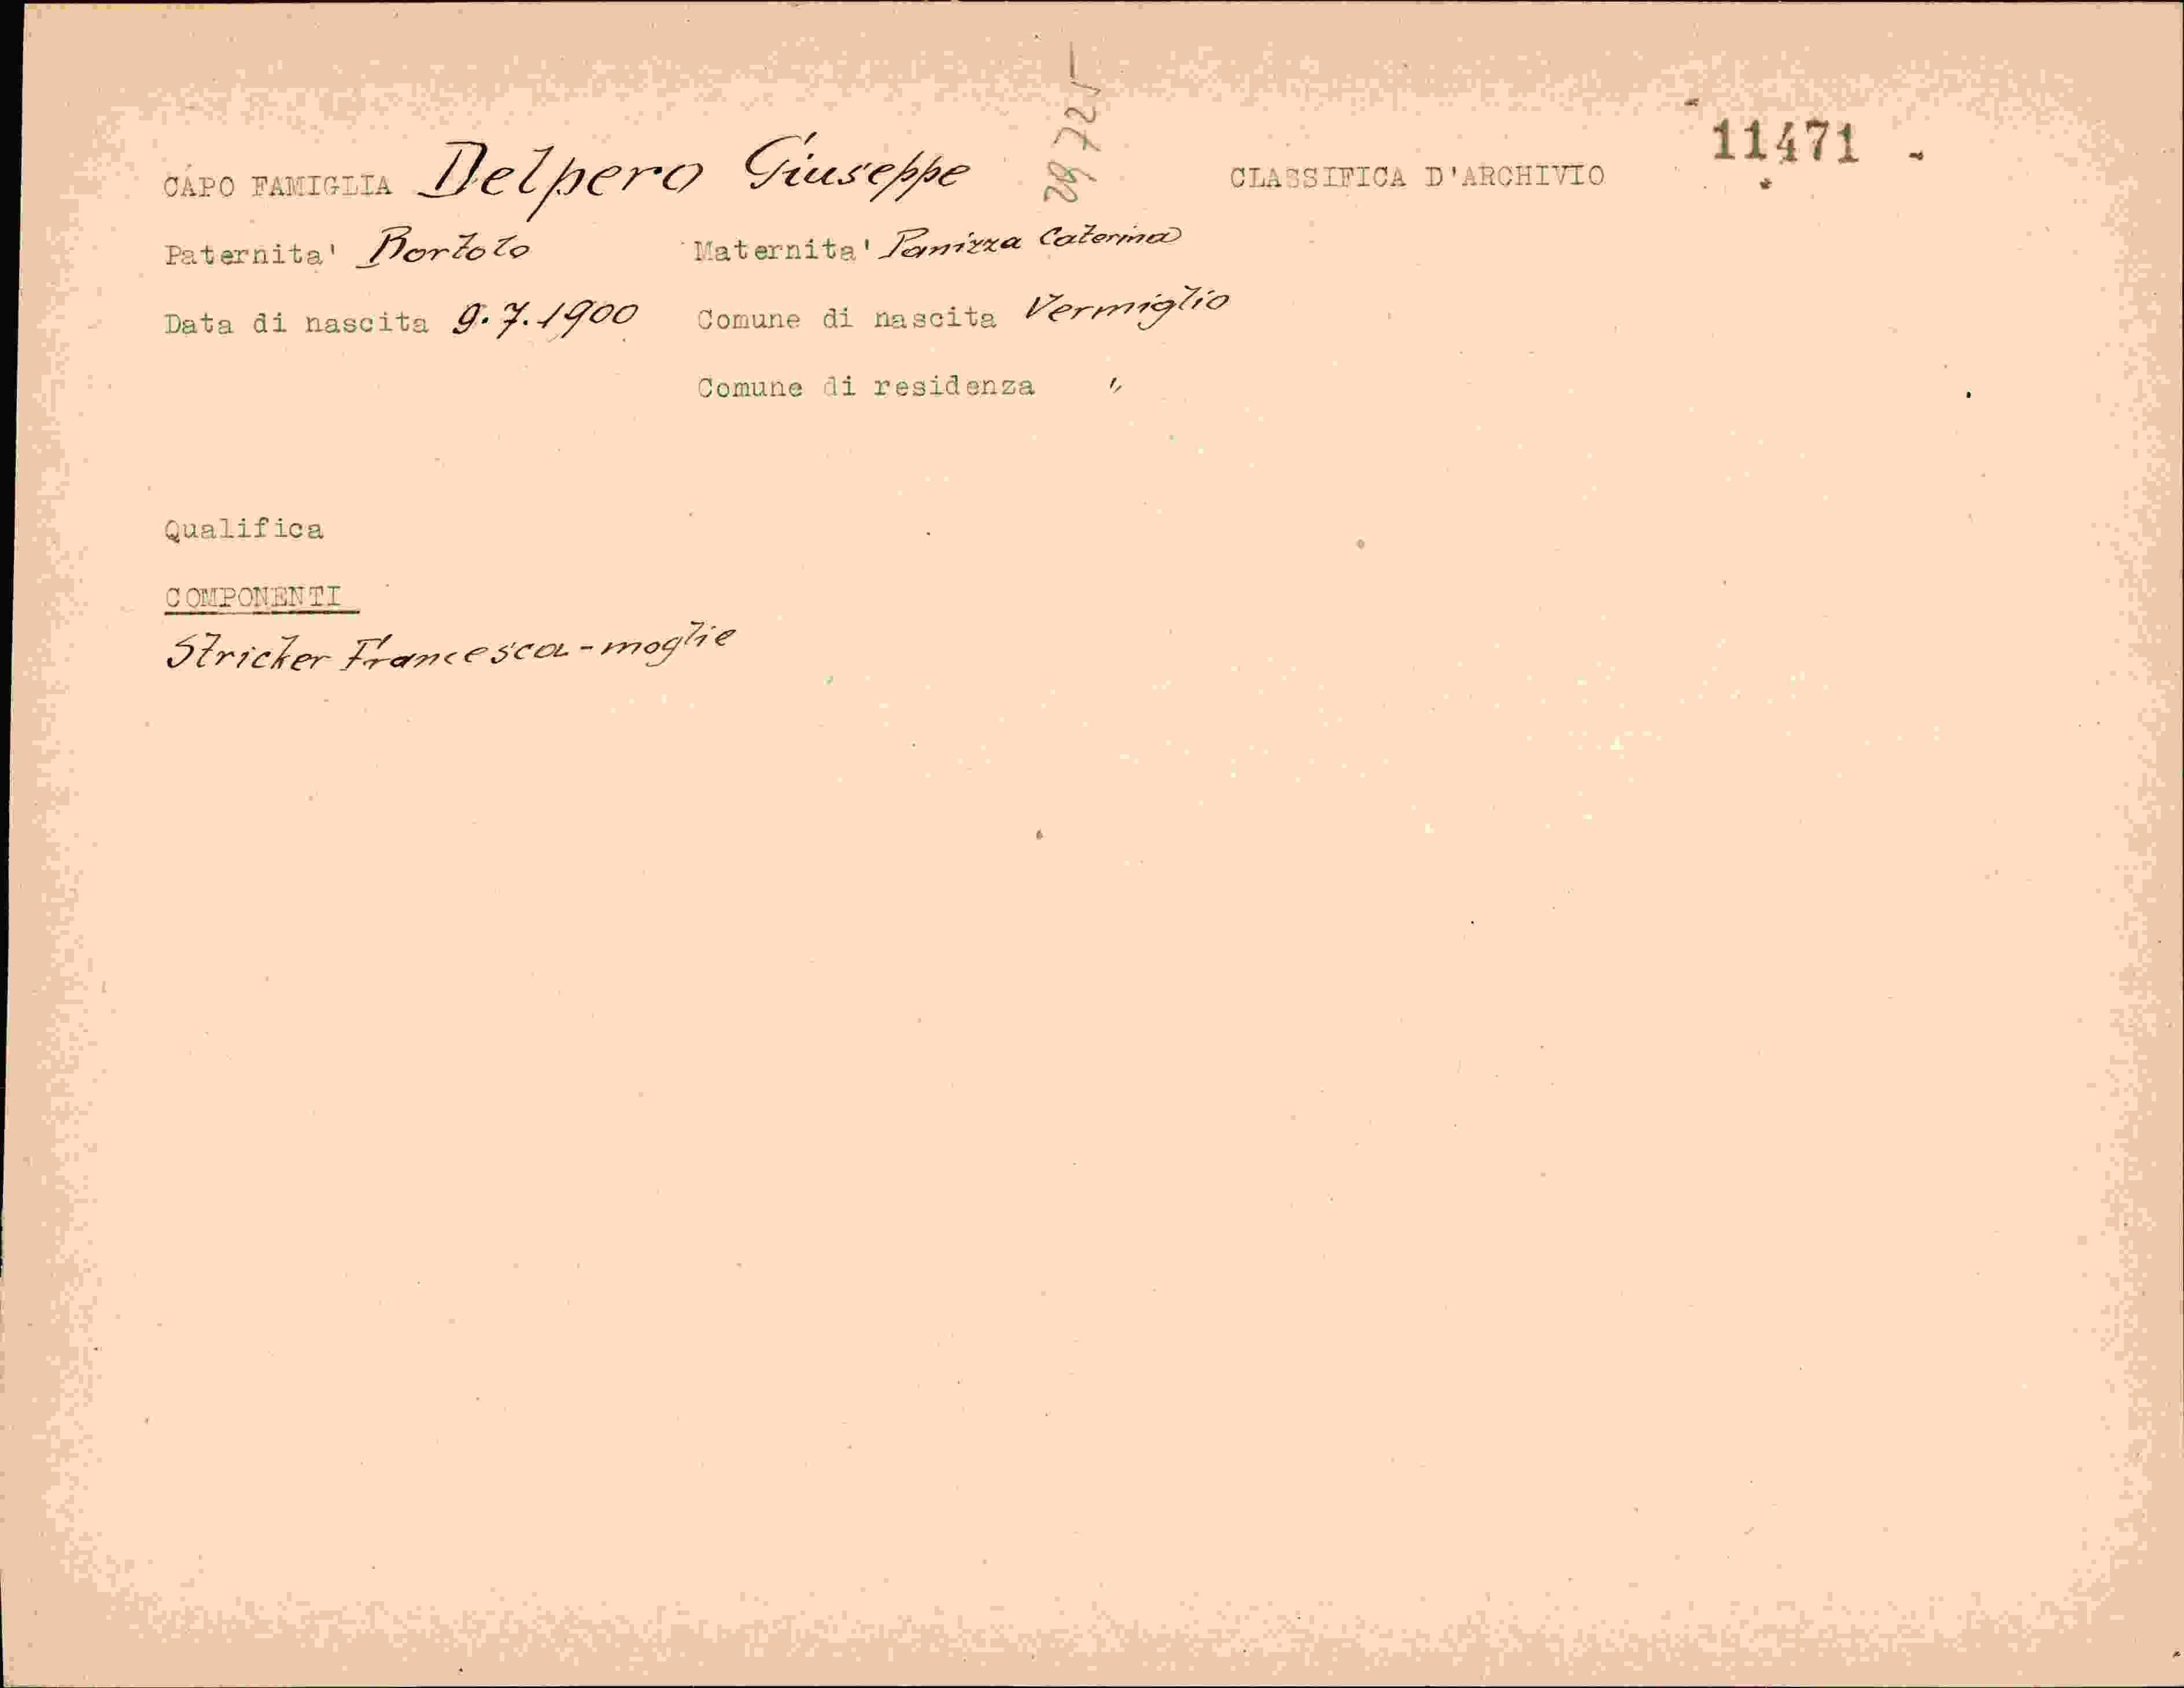 11471 -
CAPO FAMIGLIA Delpero Giuseppe CLASSIFICA D'ARCHIVIO
Paternita' Bortolo Maternita' Panizza Caterina
Data di nascita 9.7.1900 Comune di nascita Vermiglio
Comune di residenza "
Qualifica
COMPONENTI
Stricker Francesca - moglie